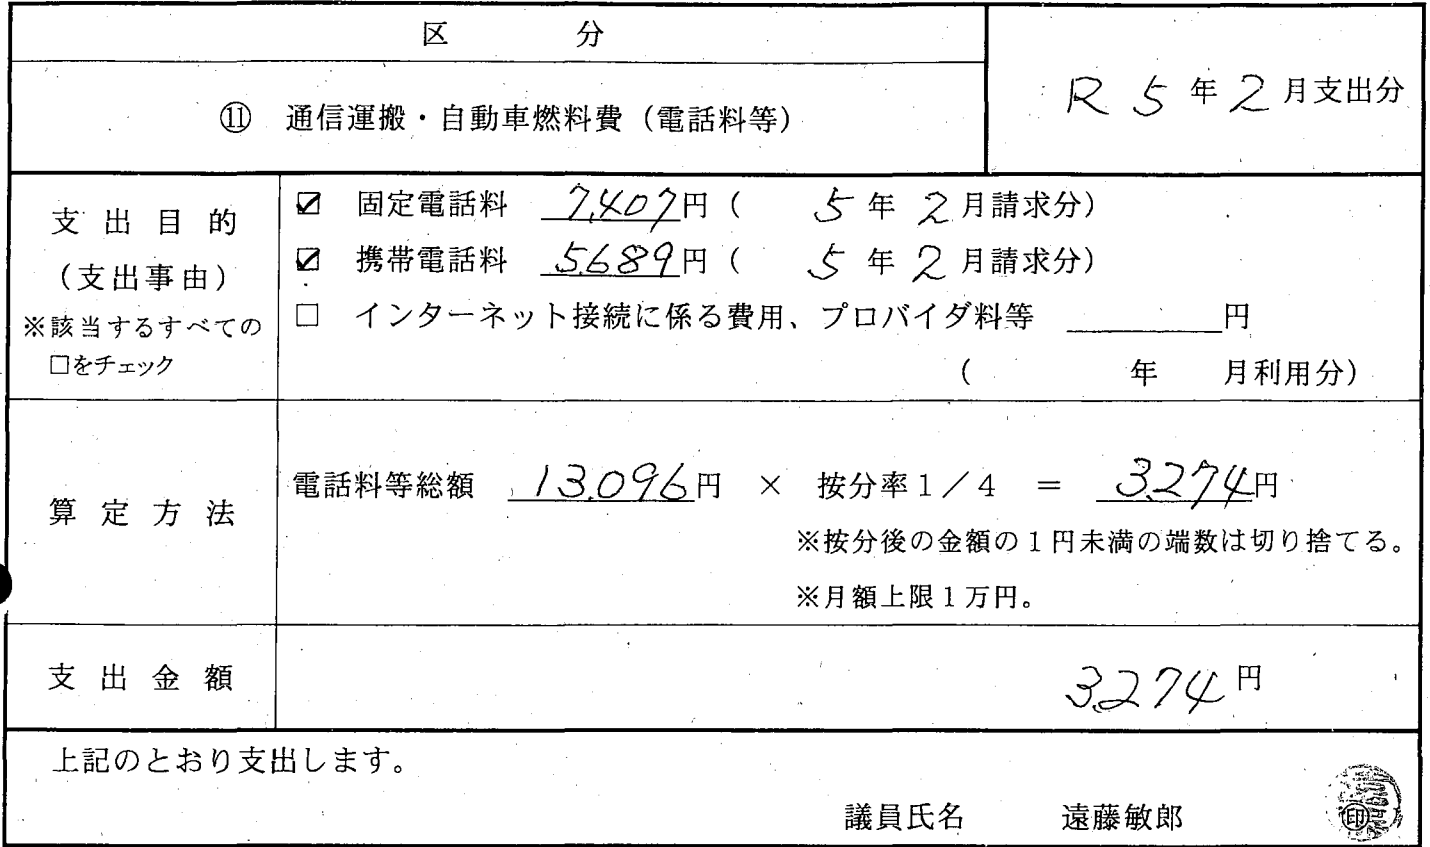 区　　分
R 5 年 2 月支出分
⑪　通信運搬・自動車燃料費（電話料等）
支出目的
（支出事由）
※該当するすべての
□をチェック
☑　固定電話料　7,407円（　5 年 2 月請求分）
☑　携帯電話料　5,689円（　5 年 2 月請求分）
□　インターネット接続に係る費用、プロバイダ料等　＿＿＿円
（　　年　　月利用分）
算定方法
電話料等総額　13,096円　×　按分率１／４　＝　3,274円
※按分後の金額の１円未満の端数は切り捨てる。
※月額上限１万円。
支出金額
3,274円
上記のとおり支出します。
議員氏名　　遠藤敏郎　　㊞